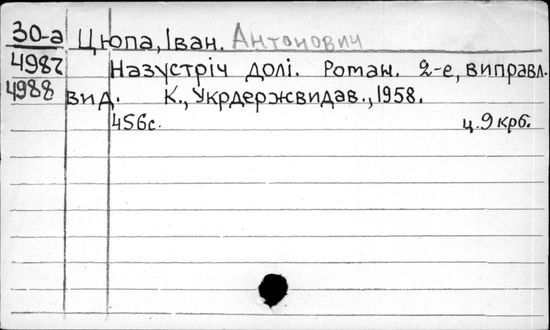 30-а Цюпа, Іван. Антонович
4987 Назустріч долі. Роман. 2-е, виправл.
4988 вид. К., Укрдержвидав., 1958.
456с. ц. 9 крб.